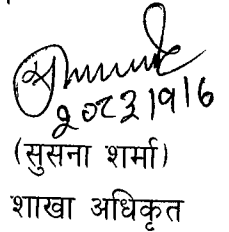 २०८३।१।६
(सुसना शर्मा)
शाखा अधिकृत